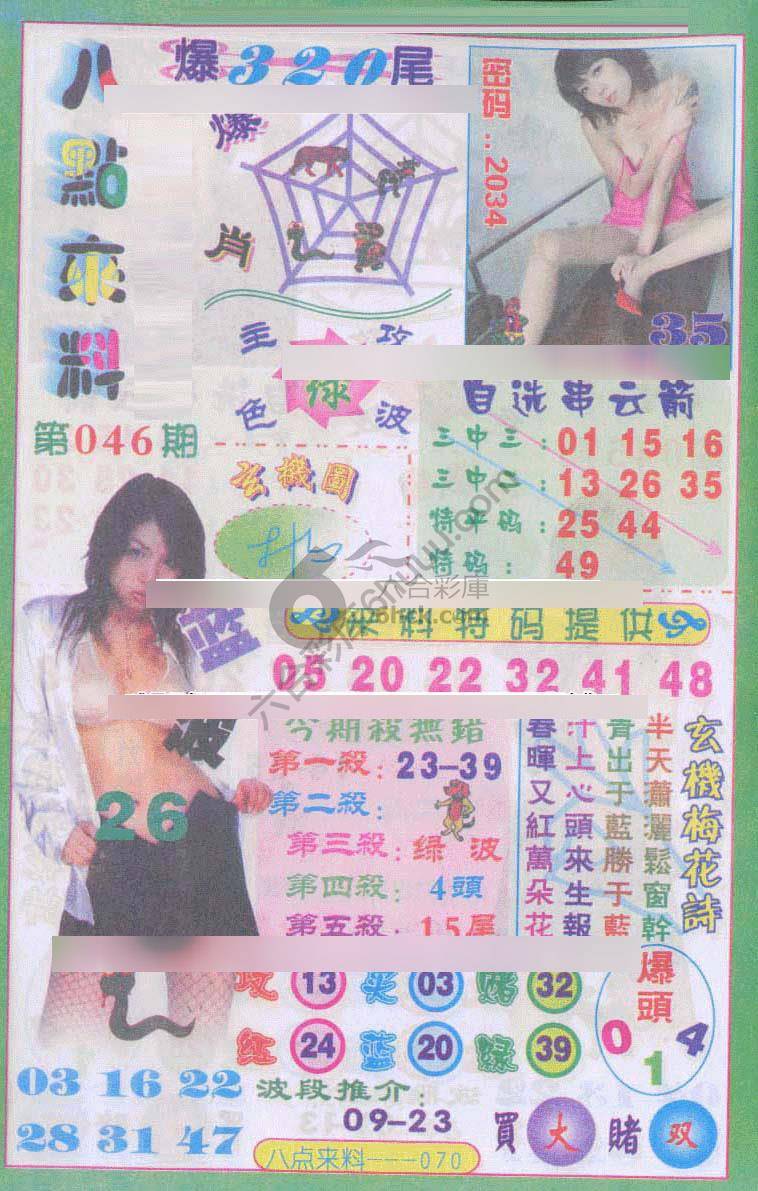 爆320尾
八點來料
爆肖
密码..2034
35
主攻
绿
色波
第046期
自选串云箭
三中三:01 15 16
三中二:13 26 35
特平码:25 44
特码:49
玄機圖
藍波
26
來料特码提供
05 20 22 32 41 48
今期殺無錯
第一殺:23-39
第二殺:
第三殺:绿波
第四殺:4頭
第五殺:15尾
玄機梅花詩
半天瀟灑鬆窗幹
青出于藍勝于藍
汁上心頭來生報
春暉又紅萬朵花
13 03 32
红24 蓝20 緑39
爆頭
0 1 4
03 16 22
28 31 47
波段推介:
09-23
買大賭双
八点来料---070